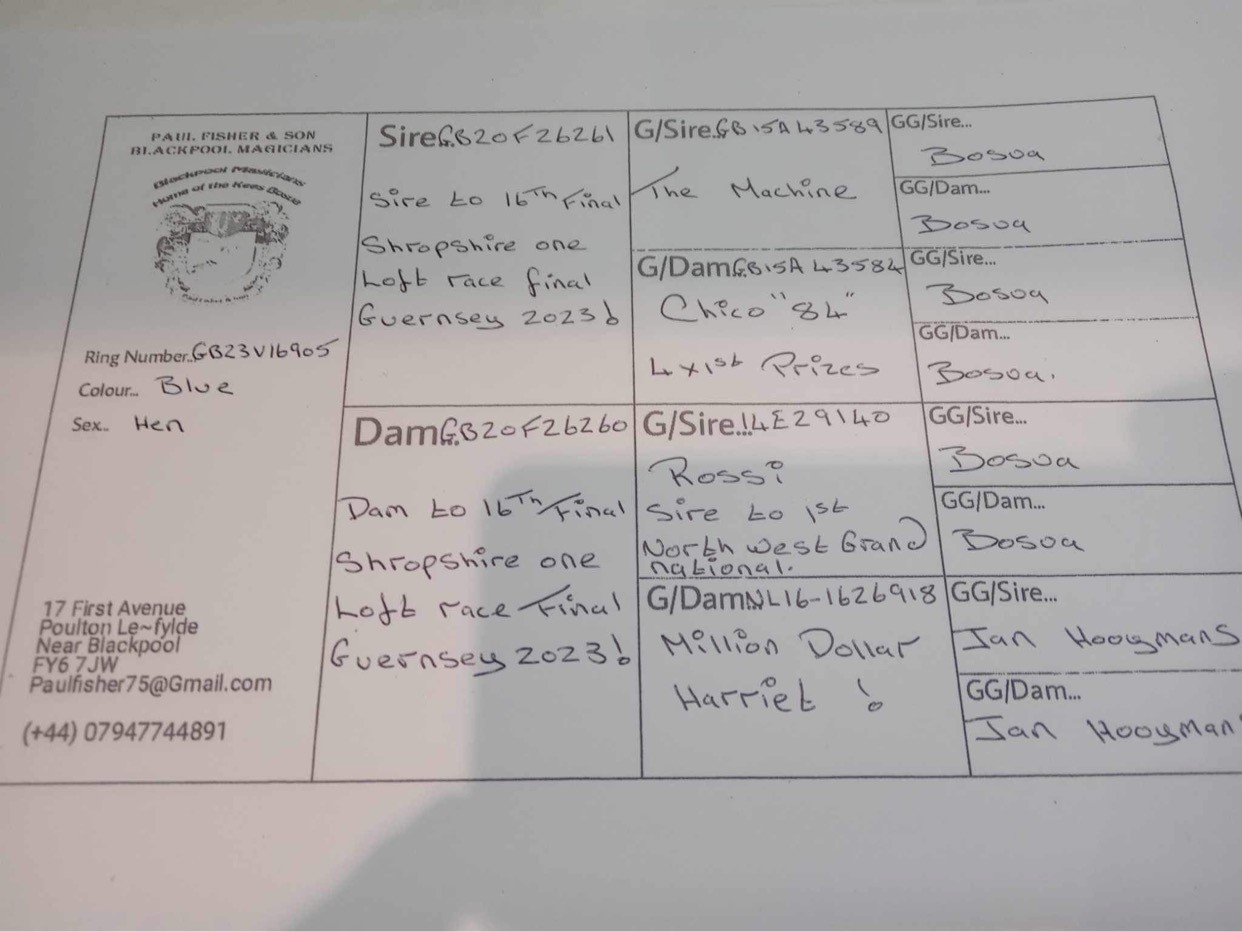 PAUL FISHER & SON
BLACKPOOL MAGICIANS
Blackpool Magicians
Home of the Kees Bosua
Ring Number..GB23V16905
Colour... Blue
Sex.. Hen
17 First Avenue
Poulton Le~fylde
Near Blackpool
FY6 7JW
Paulfisher75@Gmail.com
(+44) 07947744891
Sire..GB20F26261
Sire to 16Th Final
Shropshire one
Loft race final
Guernsey 2023!
Dam..GB20F26260
Dam to 16Th Final
Shropshire one
Loft race Final
Guernsey 2023!
G/Sire..GB15A43589
The Machine
G/Dam..GB15A 43584
Chico "84"
4x1st Prizes
G/Sire..14E29140
Rossi
Sire to 1st
North West Grand
national.
G/Dam NL16-1626918
Million Dollar
Harriet !
GG/Sire...
Bosua
GG/Dam...
Bosua
GG/Sire...
Bosua
GG/Dam...
Bosua.
GG/Sire...
Bosua
GG/Dam...
Bosua
GG/Sire...
Jan Hooymans
GG/Dam...
Jan Hooyman